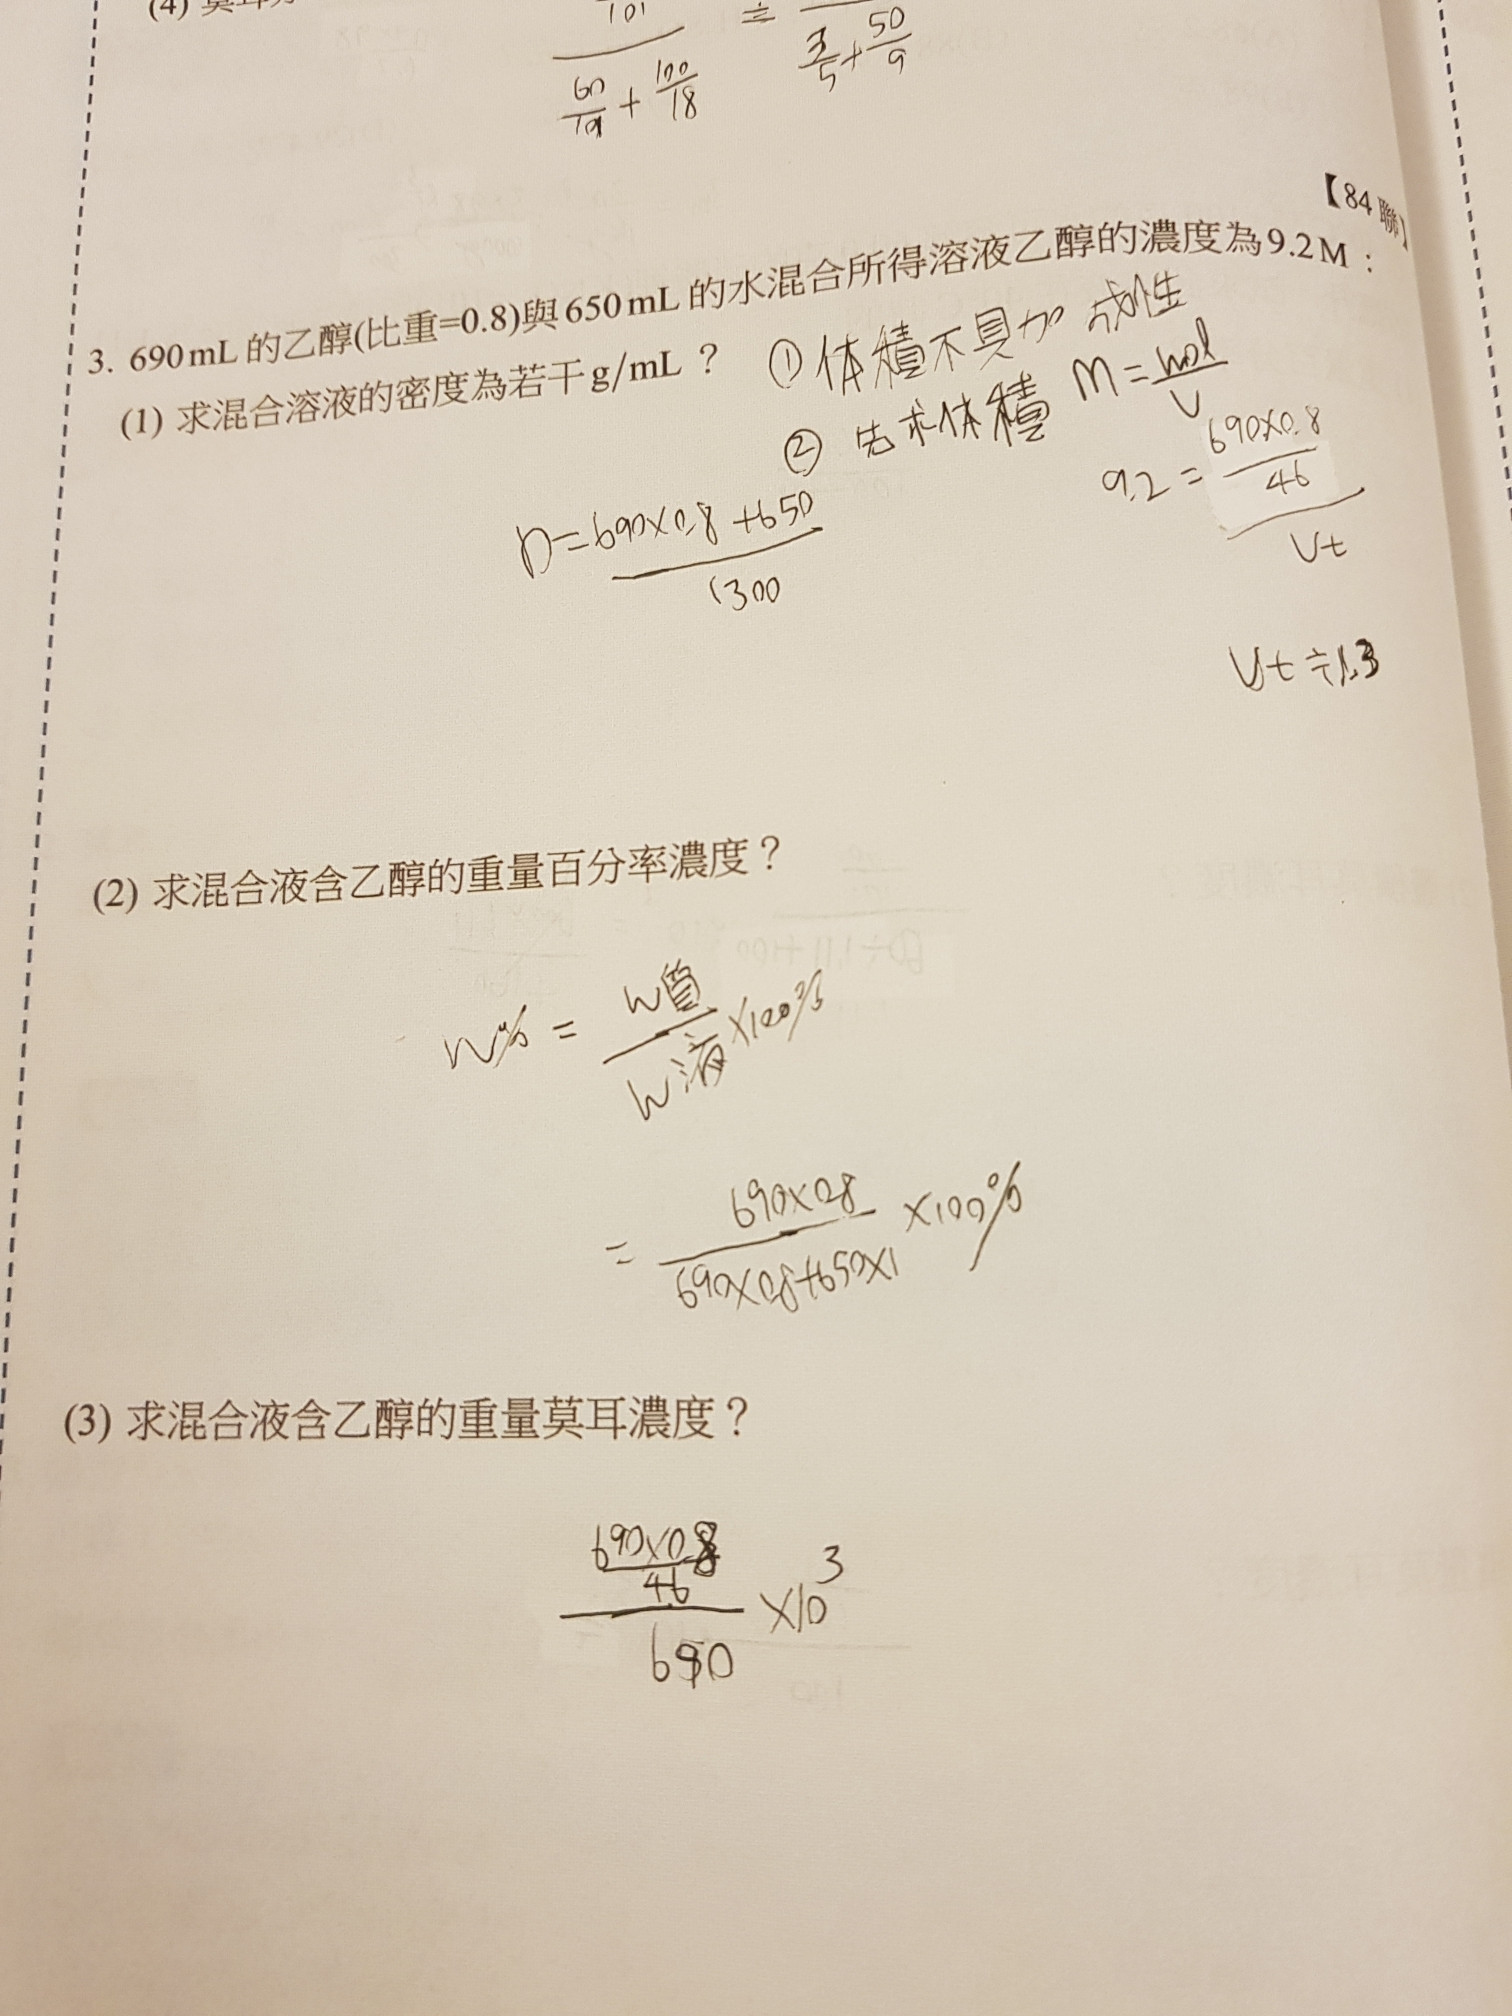 (4)
101
60/101 + 100/18
≑
3/5 + 50/9
【84 聯】
3. 690 mL 的乙醇(比重=0.8)與 650 mL 的水混合所得溶液乙醇的濃度為 9.2 M：
(1) 求混合溶液的密度為若干 g/mL？
① 体積不具加成性
② 先求体積 M = mol/V
9.2 = (690×0.8/46)/Vt
D = (690×0.8+650)/1300
Vt ≑ 1.3
(2) 求混合液含乙醇的重量百分率濃度？
W% = W質/W液 ×100%
= (690×0.8)/(690×0.8+650×1) ×100%
(3) 求混合液含乙醇的重量莫耳濃度？
(690×0.8/46)/650 ×10³